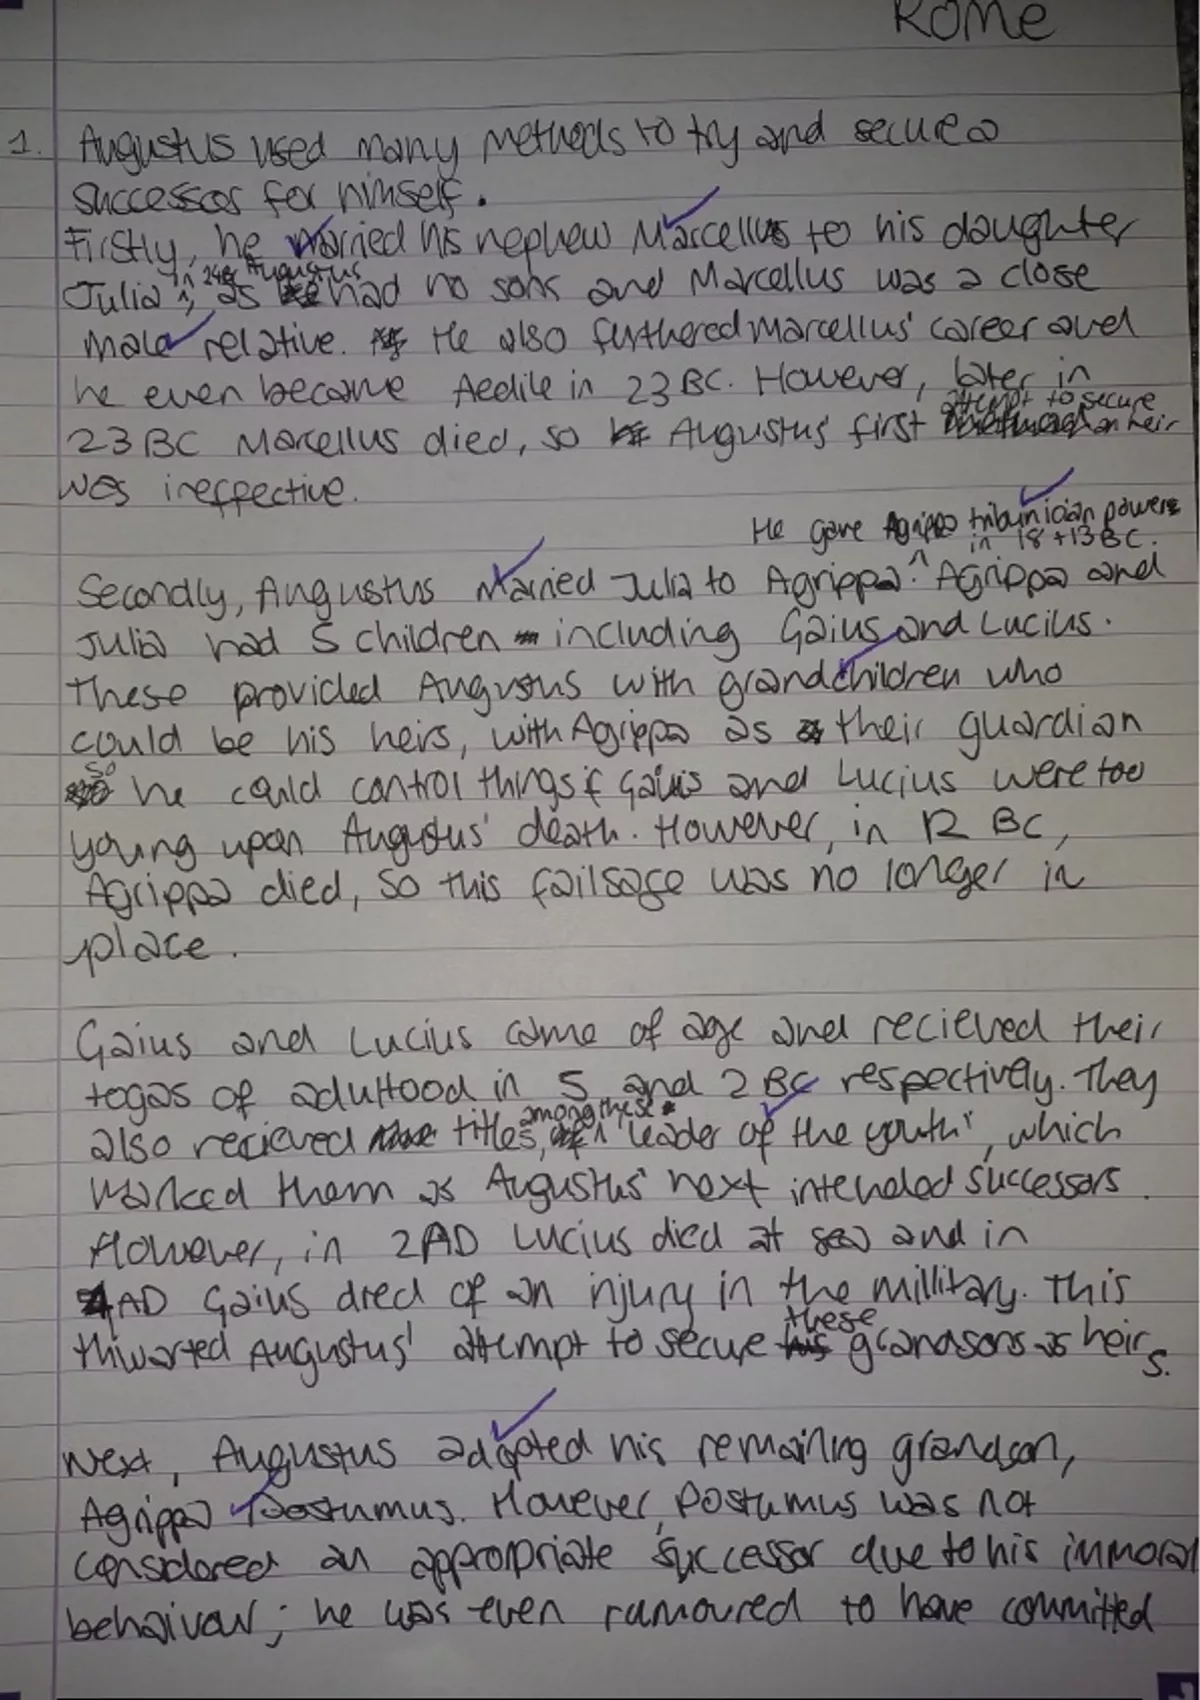 Rome
1. Augustus used many methods to try and secure a
successor for himself.
Firstly, he married his nephew Marcellus to his daughter
in 24BC Augustus
Julia, as had no sons and Marcellus was a close
male relative. He also furthered Marcellus' career and
he even became Aedile in 23 BC. However, later in
attempt to secure
23 BC Marcellus died, so Augustus' first an heir
was ineffective.
He gave Agrippa tribunician powers
in 18 + 13 BC.
Secondly, Augustus married Julia to Agrippa. ^ Agrippa and
Julia had 5 children including Gaius and Lucius.
These provided Augustus with grandchildren who
could be his heirs, with Agrippa as their guardian
so
he could control things if Gaius and Lucius were too
young upon Augustus' death. However, in 12 BC,
Agrippa died, so this failsafe was no longer in
place.
Gaius and Lucius came of age and recieved their
togas of adulthood in 5 and 2 BC respectively. They
among these
also recieved titles, ^ "leader of the youth", which
marked them as Augustus' next intended successors.
However, in 2AD Lucius died at sea and in
4AD Gaius died of an injury in the millitary. This
these
thwarted Augustus' attempt to secure grandsons as heirs.
Next, Augustus adopted his remaining grandson,
Agrippa Postumus. However, Postumus was not
considered an appropriate successor due to his immoral
behaivour; he was even rumoured to have committed